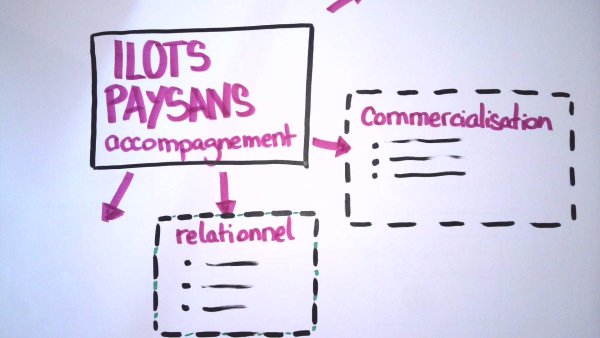 ILOTS
PAYSANS
accompagnement
Commercialisation
relationnel